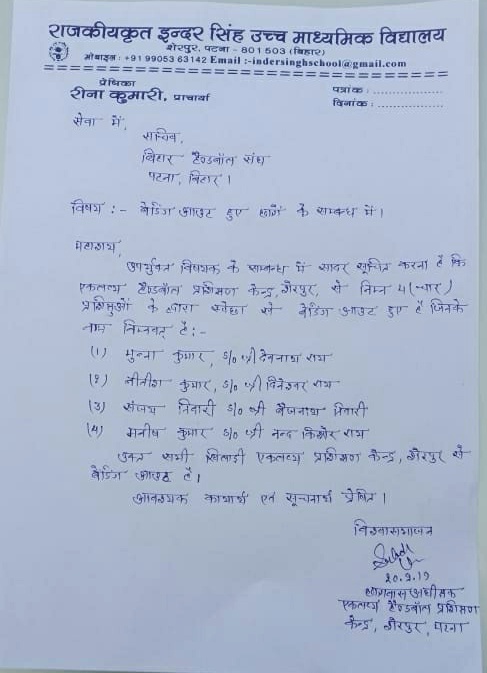 राजकीयकृत इन्दर सिंह उच्च माध्यमिक विद्यालय
शेरपुर, पटना - 801 503 (बिहार)
मोबाइल : +91 99053 63142 Email :-indersinghschool@gmail.com
प्रेषिका
रीना कुमारी, प्राचार्या
पत्रांक : ....................
दिनांक : ....................
सेवा में,
सचिव,
बिहार हैण्डबॉल संघ
पटना, बिहार।
विषय :- वेडिंग आउट हुए छात्रों के सम्बन्ध में।
महाशय,
उपर्युक्त विषयक के सम्बन्ध में सादर सूचित करना है कि
एकलव्य हैण्डबॉल प्रशिक्षण केन्द्र, शेरपुर, से निम्न 4 (चार)
प्रशिक्षुओं के द्वारा स्वेच्छा से वेडिंग आउट हुए हैं जिनके
नाम निम्नवत् है :-
(1) मुन्ना कुमार, s/o श्री देवनाथ राय
(2) नीतीश कुमार, s/o श्री विनेश्वर राय
(3) संजय तिवारी s/o श्री बैजनाथ तिवारी
(4) मनीष कुमार s/o श्री नन्द किशोर राय
उक्त सभी खिलाड़ी एकलव्य प्रशिक्षण केन्द्र, शेरपुर से
वेडिंग आउट है।
आवश्यक कार्यार्थ एवं सूचनार्थ प्रेषित।
विश्वासभाजन
20.2.19
छात्रावास अधीक्षक
एकलव्य हैण्डबॉल प्रशिक्षण
केन्द्र, शेरपुर, पटना